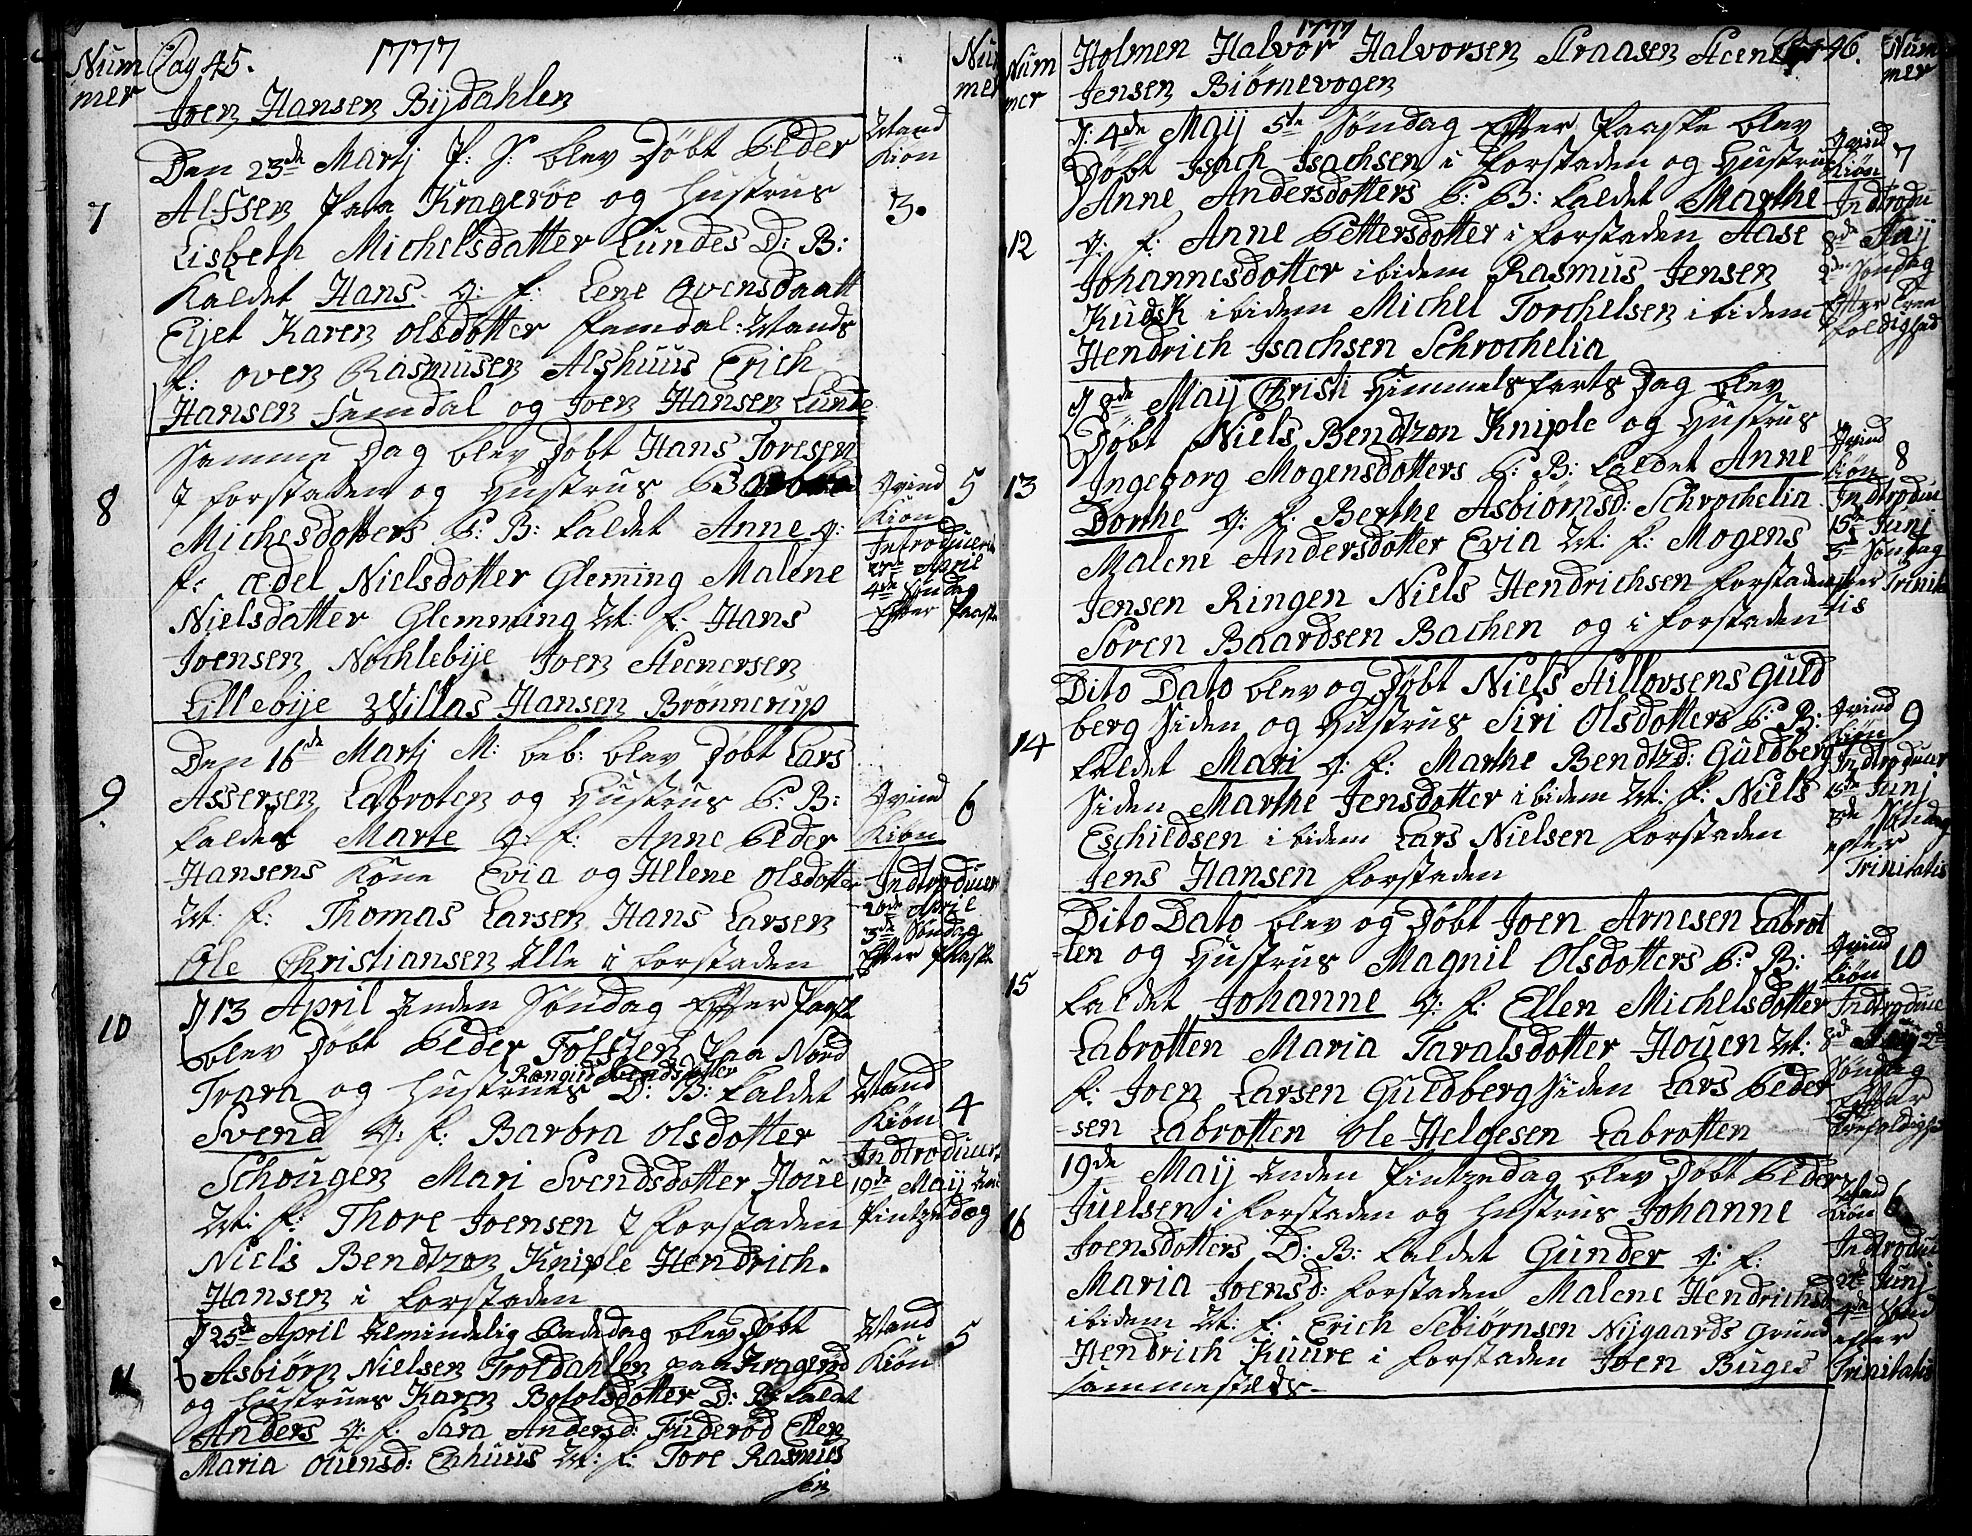 Num
mer
Pag 45.
1777
Num
mer
Joen Hansen Bijdahlen
Den 23de Martj P: S: blev Døbt Peder
Alfsen Paa Kragerøe og Hustrus
Lisbeth Michelsdatter Lundes D: B:
Kaldet Hans q: f: Lene Ovensdaatt
Eijet Karen Olsdotter Femdal: Mands
f: Oven Rasmusen Alshuus Erich
Hansen Femdal og Joen Hansen Lunde
7
Mand
Kiøn
3.
Samme Dag blev Døbt Hans Toresen
I forstaden og Hustrus
Michelsdotters P: B: kaldet Anne q:
f: Ædel Nielsdotter Glemming Malene
Nielsdatter Glemming M: f: Hans
Joensen Nochlebije Joen Steenersen
Lillebije Willas Hansen Brønnerup
8
Qvind
Kiøn
5
Introducerit
27de April
4de Søndag
Efter Paaske
Den 16de Martj M: beb: blev Døbt Lars
Assersen Labroten og Hustrus P: B:
kaldet Marte q: f: Anne Peder
Hansens Kone Evia og Hellene Olsdotter
M: f: Thomas Larsen Hans Larsen
Ole Christiansen Alle i forstaden
9.
Qvind
Kiøn
6
Indtroducer
20de April
3de Søndag
Efter Paaske
D 13 April Anden Søndag Efter Paaske
blev Døbt Peder Folsten Paa Nord
Rangild Svendsdotter
Trara og Hustrues D: B: kaldet
Svend q: f: Barbra Olsdotter
Schougen Mari Svendsdotter Houe
M: f: Thore Joensen I forstaden
Niels Bendtzon Kniple Hendrich
Hansen i forstaden
10
Mand
Kiøn
4
Indtroducer
19de Maij
Pintzedag
D 25de April Almindelig Bededag blev Døbt
Asbiørn Nielsen Troldahlen paa Kragerø
og Hustrues Karen Botolsdotter D: B: kaldt
Anders q: f: Sara Andersd: Fuderød Ellen
Maria Ouensd: Enhuus M: f: Tore Rasmus
sen
11
Mand
Kiøn
5
Num
mer
1777
Pag 46.
Num
mer
Holmen Halvor Halvorsen Straasen Steener
Jensen Biørnevogen
D: 4de Maij 5te Søndag Efter Paaske blev
Døbt Isach Isachsen i forstaden og Hustrus
Anne Andersdotters P: B: kaldet Marthe
q: f: Anne Pettersdotter i forstaden Aase
Johannesdotter ibidem Rasmus Jensen
Kudsk ibidem Michel Torchelsen ibidem
Hendrich Isachsen Schrochelia
12
Qvind
Kiøn
7
Indtrodu
8de
2den Søndag
Efter Tree
foldighed
D 8de Maij Christi Himmelsfarts Dag blev
Døbt Niels Bendtzon Kniple og Hustrus
Ingeborg Mogensdotters P: B: kaldet Anne
Dorthe q: f: Berthe Asbiørnsd: Schrochelia
Malene Andersdotter Evia M: f: Mogens
Jensen Ringen Niels Hendrichsen forstaden
Søren Baardsen Bachen og i forstaden
13
Qvind
kiøn
8
Indtroduc
15de Junj
3de Søndag
efter Trinita
tis
Dito Dato blev og Døbt Niels Stillovsens Guld
berg Siden og Hustrus Siri Olsdotters P: B:
kaldet Mari q: f: Marthe Bendtzd: Guldberg
Siden Marthe Jensdotter ibidem M: f: Niels
Eschildsen ibidem Lars Nielsen forstaden
Jens Hansen forstaden
14
Qvind
kiøn
9
Indtroducer
15de Junj
3de Søndag
efter
Trinitatis
Dito Dato blev og Døbt Joen Arnesen Labrot
-ten og Hustrus Magnil Olsdotters P: B:
kaldet Johanne q: f: Ellen Michelsdotter
Labrotten Maria Taralsdotter Houen M:
f: Joen Larsen Guldberg Siden Lars Peder
-sen Labrotten Ole Helgesen Labrotten
15
Qvind
kiøn
10
Indtroduce
8de 2de
Søndag
Efter
Trefoldighed
19de Maij Anden Pintzedag blev Døbt Peder
Juelsen i forstaden og Hustrus Johanne
Joensdotters D: B: kaldet Gunder q: f:
Maria Joensd: forstaden Malene Hendrichsd
ibidem M: f: Erich Sebiørnsen Nijgaards Grund
Hendrich Kuure i forstaden Joen Buges
sammesteds.
16
Mand
kiøn
6
Indtroduc
22de Junj
4de Sønd
efter
Trinitatis